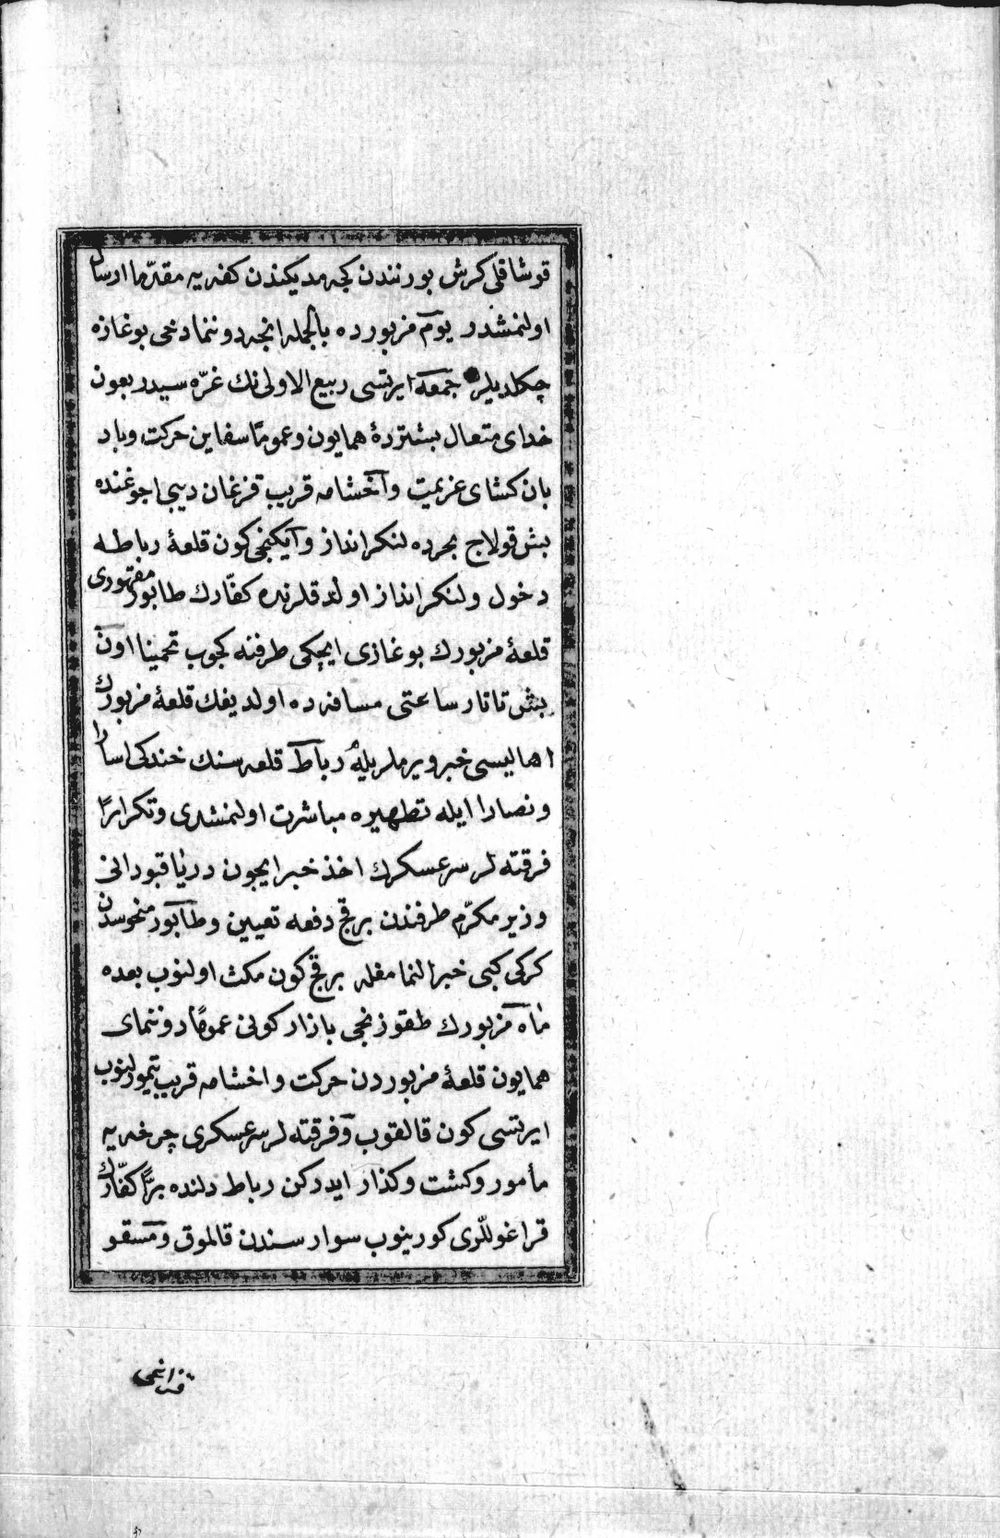 قوشاقلی کرش بورنندن کچه مدیکندن کفه یه مقدّما ارسال
اولنمشدر یوم مزبورده بالجمله انجه دوننما دخی بوغازه
چکلدیلر جمعه ایرتسی ربیع الاولی نك غرّه سیدر بعون
خدای متعال بشترده همایون وعمومًا سفاین حرکت وباد
بان کشای عزیمت وآخشامه قریب قزغان دیبی اجوغنده
بش قولاج بحرده لنکرانداز وایکنجی کون قلعهٔ رباطه
دخول ولنکرانداز اولدقلرنده کفّارك طابور مقهوری
قلعهٔ مزبورك بوغازی ایچکی طرفنه کچوب تخمینا اون
بش تاتار ساعتی مسافه ده اولدیغك قلعهٔ مزبورك
اهالیسی خبر ویرملریله رباط قلعه سنك خندکی اسارا
ونصارا ایله تطهیره مباشرت اولنمشدی وتکرارًا
فرقته لر سرعسکرك اخذ خبر ایچون دریا قبودانی
وزیر مکرّم طرفندن برقچ دفعه تعیین وطابور منحوسدن
کرکی کبی خبر النمامغله برقچ کون مکث اولنوب بعده
ماه مزبورك طقوزنجی بازار کونی عمومًا دوننمای
همایون قلعهٔ مزبوردن حرکت واخشامه قریب تیمورلنوب
ایرتسی کون قالقوب وفرقته لر سرعسکری چرخه یه
مأمور وکشت وکذار ایدرکن رباط دلنده برًّا کفّارك
قراغوللری کورینوب سوارسندن قالموق ومسقو
قزانجی